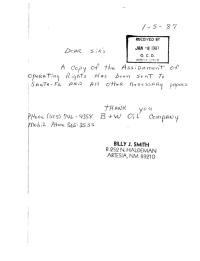 1-5-87
RECEIVED BY
JAN -8 1987
O. C. D.
DEAR SIRS
A Copy of the Assignment of
Operating Rights Has been sent To
Santa-Fe and all other necessary papers
THANK you
Phone (505) 746-
B+W Oil Company
Mobil Phone
BILLY J. SMITH
N. HALDEMAN
ARTESIA, NM 88210